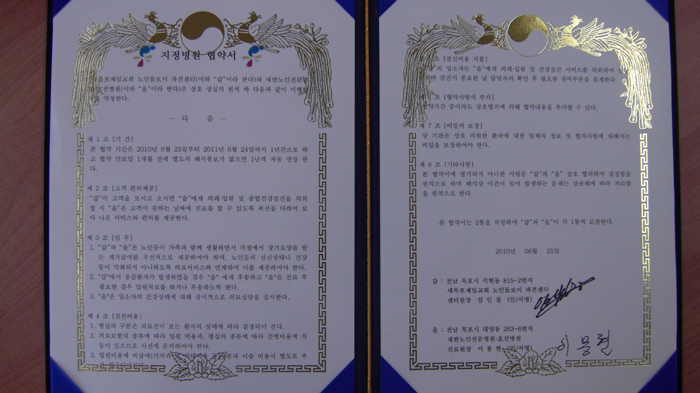 지정병원 협약서
새목포제일교회 노인돌보미 파견센터(이하 "갑"이라 한다)와 새한노인전문
효진병원(이하 "을"이라 한다)은 상호 성실의 원칙 하 다음과 같이 이행
을 약정한다.
- 다 음 -
제 1 조 [기 간]
본 협약 기간은 2010년 6월 25일부터 2011년 6월 24일까지 1년간으로 하
고 협약 만료일 1개월 전에 별도의 해지통보가 없으면 1년씩 자동 연장 한
다.
제 2 조 [고객 편의제공]
"갑"이 고객을 모시고 오시면 "을"에게 외래·입원 및 종합건강검진을 의뢰
할 시 "을"은 고객이 원하는 날짜에 진료를 할 수 있도록 최선을 다하여 보
다 나은 서비스와 편의를 제공한다.
제 3 조 [임 무]
1. "갑"과 "을"은 노인들이 가족과 함께 생활하면서 가정에서 장기요양을 받
는 재가급여를 우선적으로 제공하여야 하며, 노인등의 심신상태나 건강
등이 악화되지 아니하도록 의료서비스와 연계하여 이를 제공하여야 한다.
2. "갑"에서 응급환자가 발생하였을 경우 "을" 에게 후송하고 "을"은 진료 후
필요한 경우 입원치료를 하거나 후송하도록 한다.
3. "을"은 입소자의 건강상태에 대해 상시적으로 의료상담을 실시한다.
제 4 조 [검진비용]
1. 병실의 구분은 의료진이 보는 환자의 상태에 따라 결정되어 진다.
2. 의료보험의 종류에 따라 입원 비용과, 병실의 종류에 따라 간병비용에 차
등이 있으므로 사전에 문의하여야 한다.
3. 입원비용에 비급여(기저귀
조 [검진비용 지불]
"갑"의 입소자는 "을"에게 외래·입원 및 건강검진 서비스를 의뢰하여
하며 검진이 종료된 날 담당자의 확인 후 필요한 경의부분을 결제한다.
조 [협약사항의 추가]
협약기간 중이라도 상호협의에 의해 협약내용을 추가할 수 있다.
제 7 조 [비밀의 보장]
양 기관은 상호 의뢰한 환자에 대한 일체의 정보 및 협의사항에 대해서는
비밀을 보장하여야 한다.
제 8 조 [기타사항]
본 협약서에 명기되지 아니한 사항은 "갑"과 "을" 상호 협의하여 결정함을
원칙으로 하며 해석상 이견이 있어 발생하는 문제는 상관례에 따라 처리함
을 원칙으로 한다.
본 협약서는 2통을 작성하여 "갑"과 "을"이 각 1통씩 보관한다.
2010년 06월 25일
갑 : 전남 목포시 석현동 815-2번지
새목포제일교회 노인돌보미 파견센터
센터원장 엄 인 철 (인/서명)
을 : 전남 목포시 대양동 263-6번지
새한노인전문병원·효진병원
진료원장 이 봉 현 (인/서명)